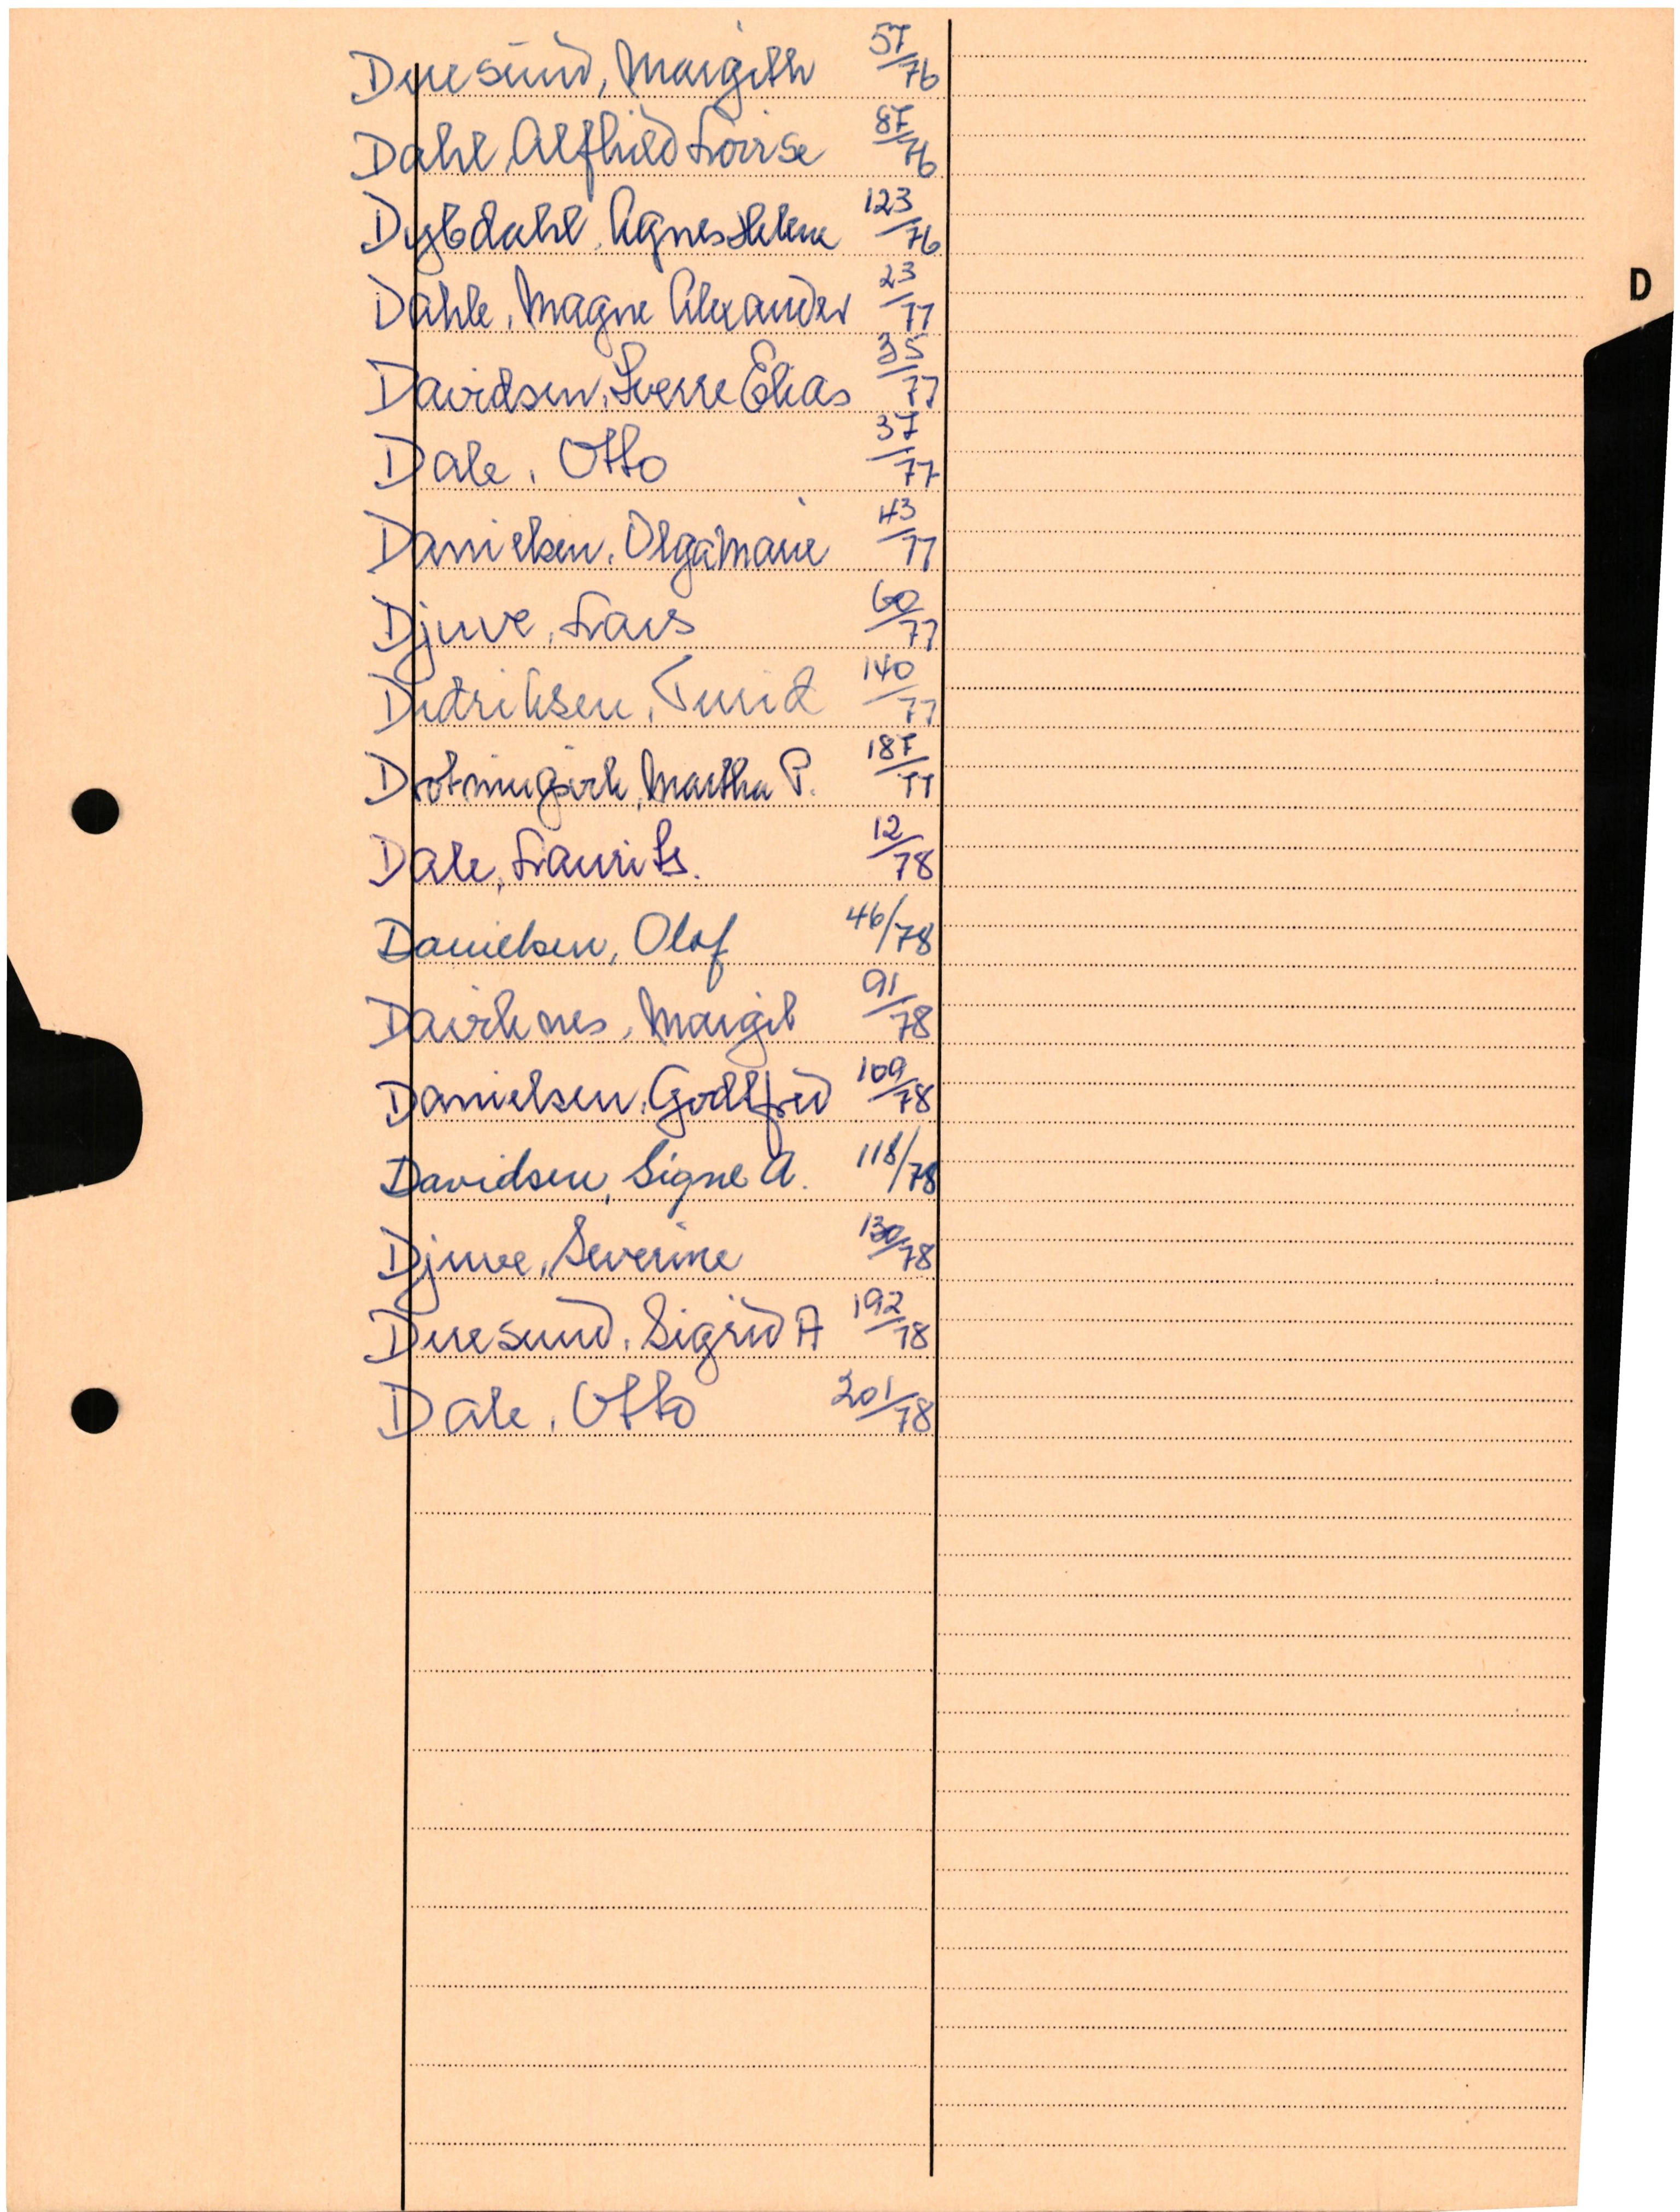 Duesund, Margith 57/76
Dahl, Alfhild Lovise 87/76
Dybdahl, Agnes Helene 123/76
Dahle, Magne Alexander 23/77
D
Davidsen, Sverre Elias 35/77
Dale, Otto 37/77
Danielsen, Olga Marie 43/77
Djuve, Lars 60/77
Didriksen, Turid 140/77
Drotningsvik, Martha P. 187/77
Dale, Laurits. 12/78
Danielsen, Olaf 46/78
Davknes, Margit 91/78
Danielsen, Godtfred 109/78
Davidsen, Signe A. 118/78
Djuve, Severine 130/78
Duesund, Sigrid A 192/78
Dale, Otto 201/78